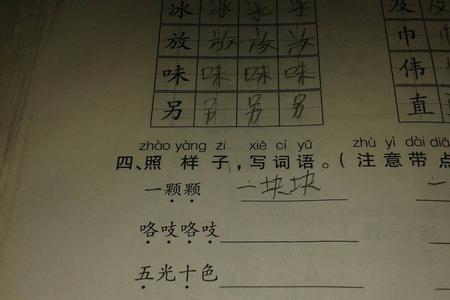 冰 冰 冰 冰
放 放 放 放
味 味 味 味
另 另 另 另
巾
伟
直
zhào yàng zi xiě cí yǔ zhù yì dài diǎ
四、照样子,写词语。(注意带点
一颗颗 一块块
咯吱咯吱
五光十色